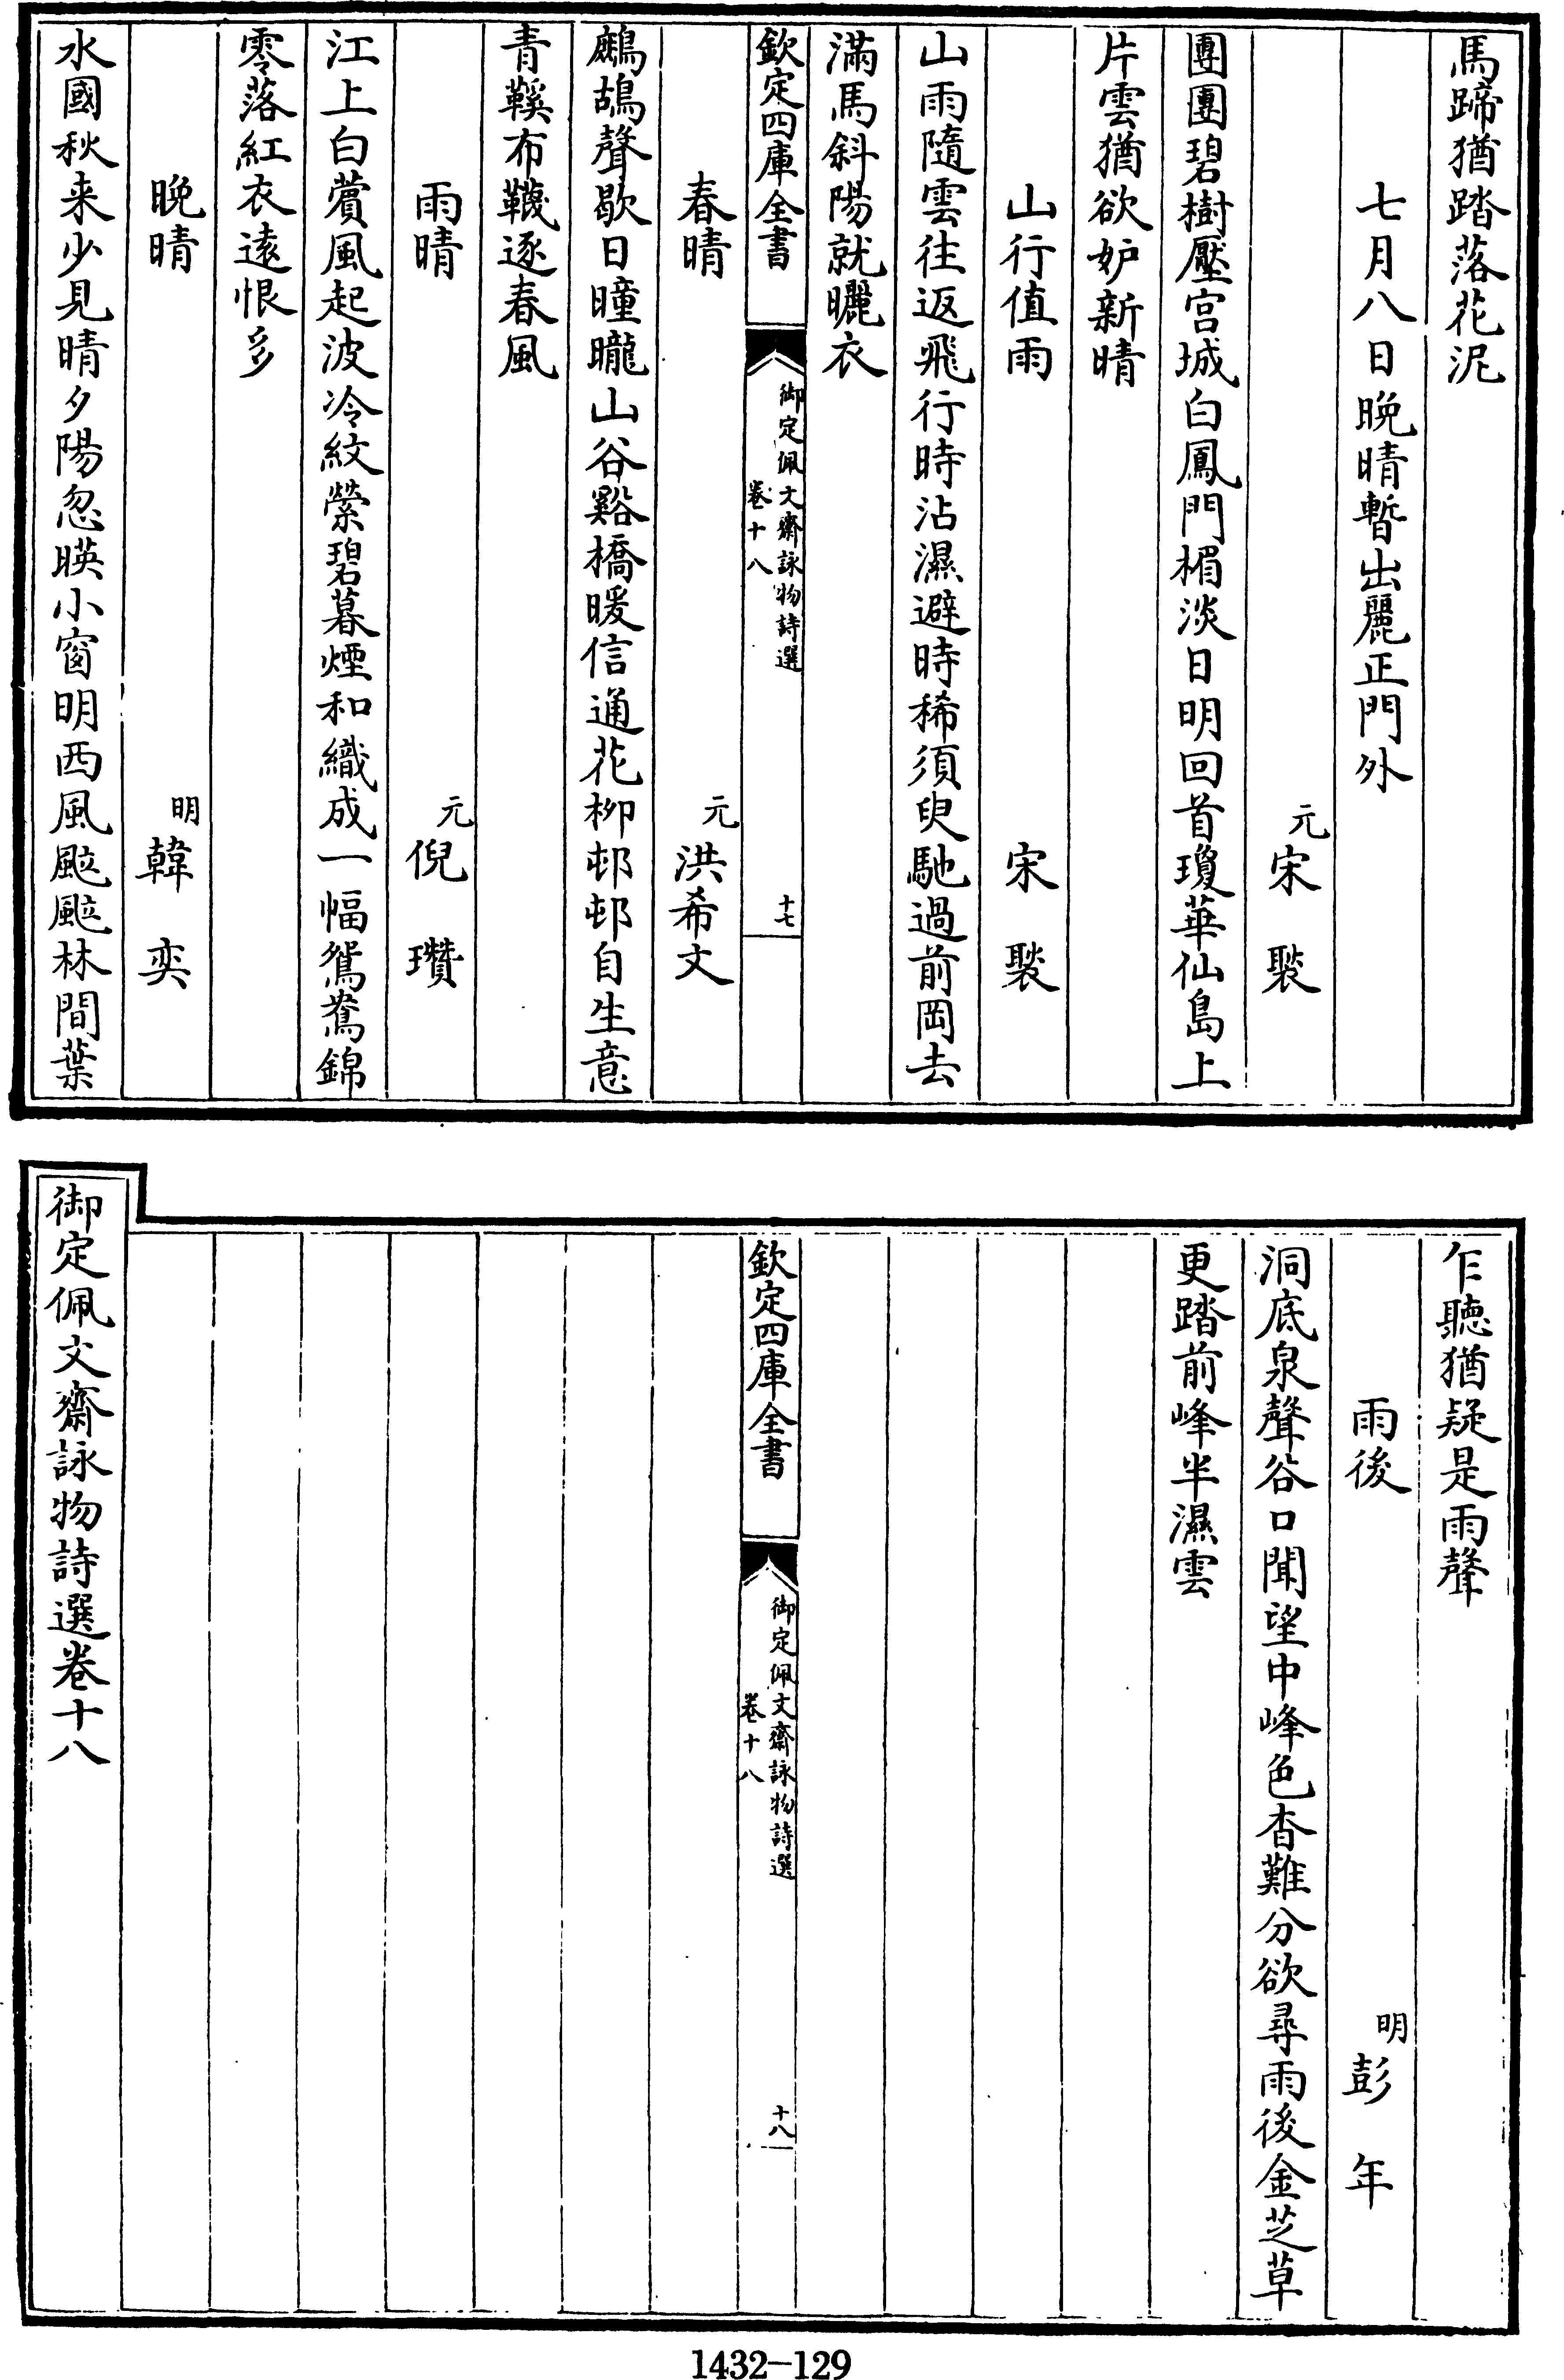 馬蹄猶踏落花泥
七月八日晚晴暫出麗正門外
元宋褧
團團碧樹壓宫城白鳳門楣淡日明回首瓊華仙島上
片雲猶欲妒新晴
山行值雨 宋褧
山雨隨雲往返飛行時沾濕避時稀須臾馳過前岡去
滿馬斜陽就曬衣
欽定四庫全書
御定佩文齋詠物詩選
卷十八
十七
春晴 元洪希文
鷓鴣聲歇日曈曨山谷谿橋暖信通花柳邨邨自生意
青鞵布韈逐春風
雨晴 元倪瓚
江上白蘋風起波冷紋縈碧暮煙和織成一幅鴛鴦錦
零落紅衣遠恨多
晚晴 明韓奕
水國秋来少見晴夕陽忽暎小窗明西風颭颭林間葉
乍聽猶疑是雨聲
雨後 明彭年
洞底泉聲谷口聞望中峰色杳難分欲尋雨後金芝草
更踏前峰半濕雲
欽定四庫全書
御定佩文齋詠物詩選
卷十八
十八
御定佩文齋詠物詩選卷十八
1432-129